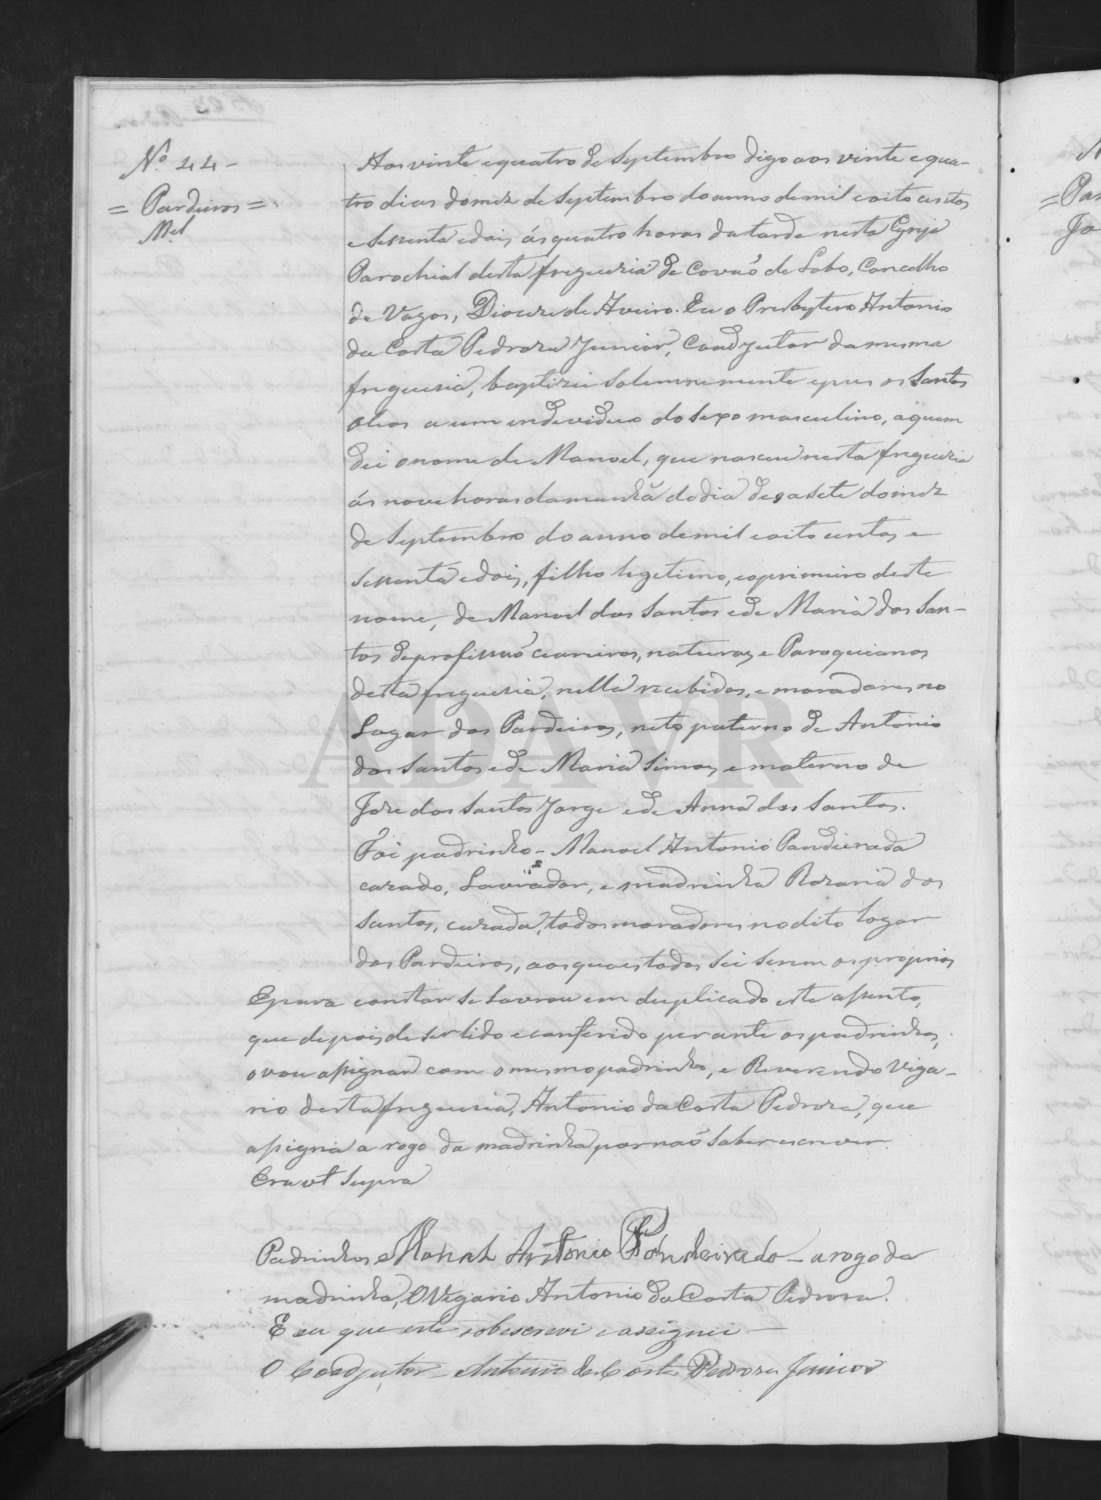 Nº 44 -
= Pardieiros =
Mel
Aos vinte e quatro de Septembro digo aos vinte e qua-
tro dias do mez de Septembro do anno de mil e oito centos
e sessenta e dois, ás quatro horas da tarde nesta Igreja
Parochial desta freguezia de Covão de Lobo, Concelho
de Vagos, Diocese de Aveiro. Eu o Presbytero Antonio
da Costa Pedroza Junior, Coadjutor da mesma
freguesia, baptizei solemnemente e pus os Santos
Oleos a um endeviduo do sexo masculino, a quem
dei o nome de Manoel, que nasceu nesta freguezia
ás nove horas da manhã do dia desasete do mez
de Septembro do anno de mil e oito centos e
sessenta e dois, filho legetimo, e o primeiro deste
nome, de Manoel dos Santos e de Maria dos San-
tos de profissaõ seareiros, naturaes e Paroquianos
desta freguesia, nella recebidos, e moradores no
Lugar dos Pardieiros, neto paterno de Antonio
dos Santos e de Maria Simoes e materno de
Joze dos Santos Jorge e de Anna dos Santos.
Foi padrinho - Manoel Antonio Pandeirada
cazado, Lavrador, e madrinha Rozaria dos
Santos, cazada, todos moradores no dito logar
dos Pardieiros, aos quaes todos sei serem os proprios
E para constar se Lavrou em duplicado este assento,
que depois de ser lido e conferido perante os padrinhos,
o vou assignar com o mesmo padrinho, e Reverendo Viga-
rio desta freguesia, Antonio da Costa Pedroza, que
assigna a rogo da madrinha por naõ saber escrever
Era ut Supra
Padrinho Manoel Antonio Pandeirada - a rogo da
madrinha, O Vigario Antonio da Costa Pedroza.
E eu que este sobescrevi e assignei -
O Coadjutor - Antonio da Costa Pedroza Junior
ADAVR
= Par
Jo